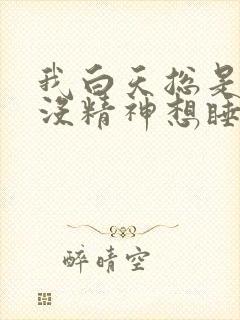 我白天总是
没精神想睡
醉晴空